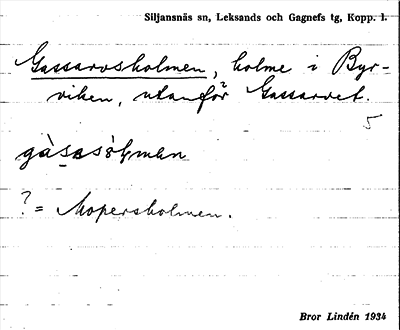 Siljansnäs sn, Leksands och Gagnefs tg, Kopp. l.
Gassarvsholmen, holme i Byr-
viken, utanför Gassarvet.
?
5
gàsasòɫmən
? = Mopersholmen.
Bror Lindén 1934